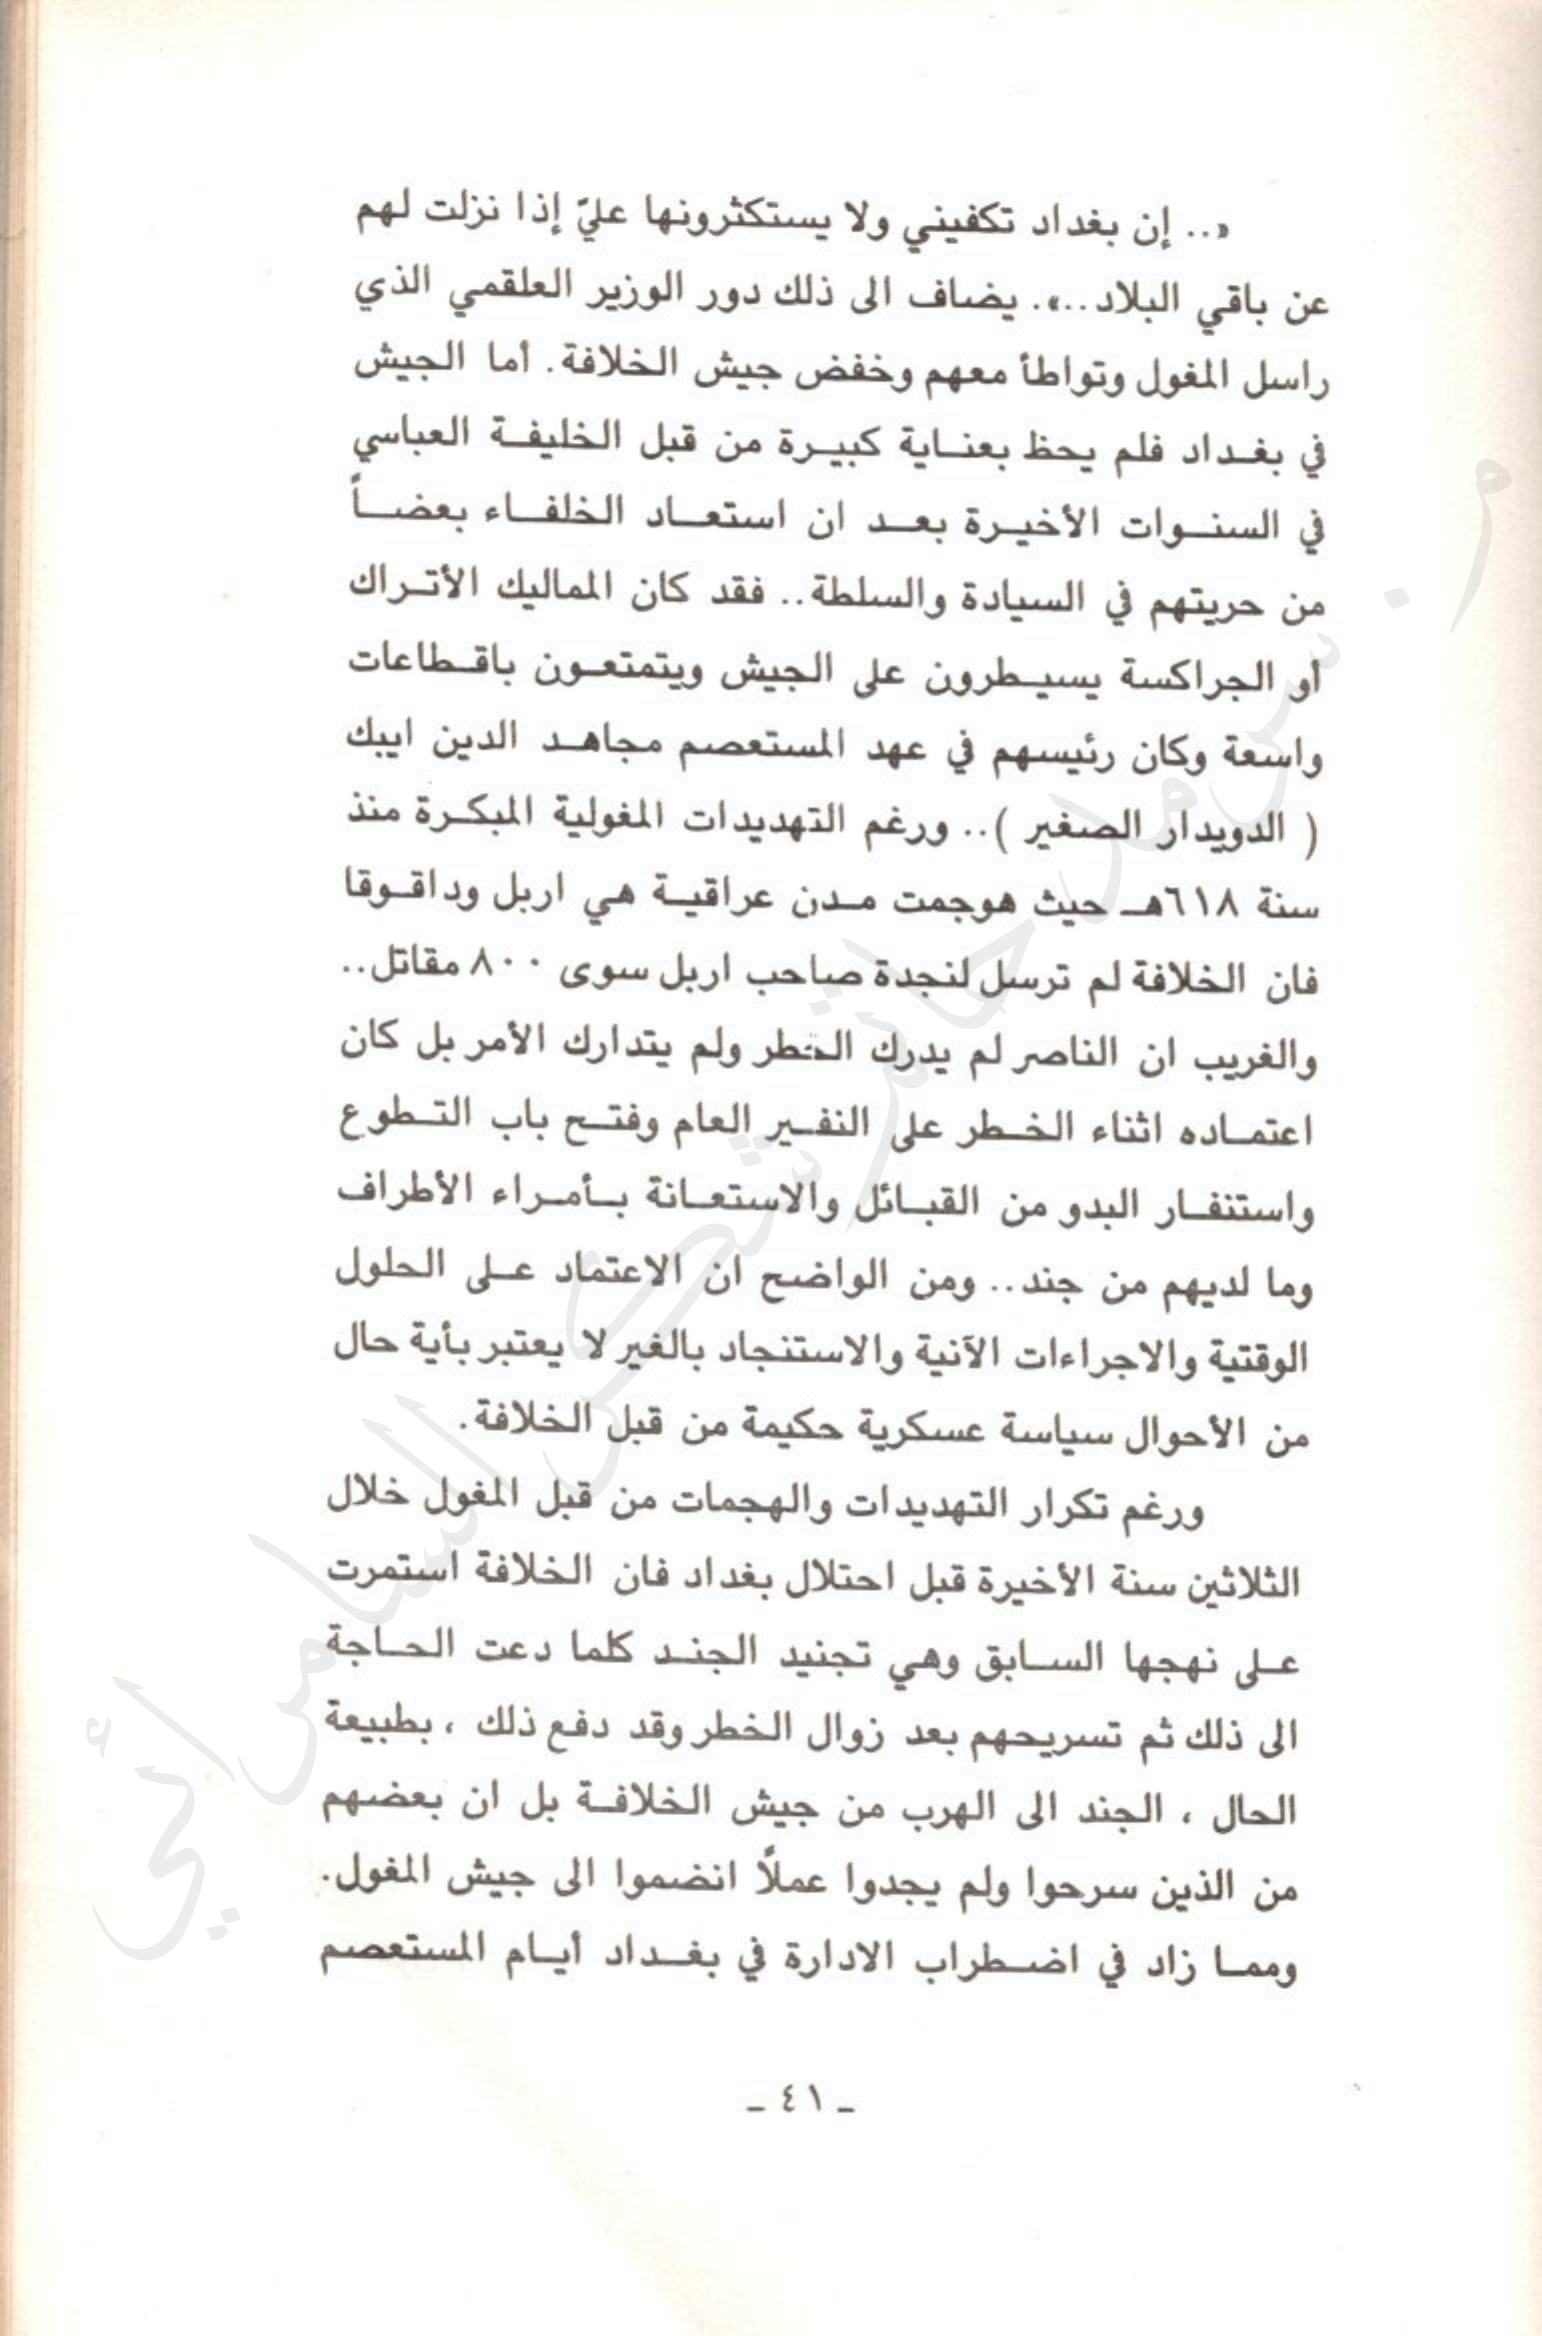 «.. إن بغداد تكفيني ولا يستكثرونها عليّ إذا نزلت لهم
عن باقي البلاد ..». يضاف الى ذلك دور الوزير العلقمي الذي
راسل المغول وتواطأ معهم وخفض جيش الخلافة. أما الجيش
في بغداد فلم يحظ بعناية كبيرة من قبل الخليفة العباسي
في السنوات الأخيرة بعد ان استعاد الخلفاء بعضاً
من حريتهم في السيادة والسلطة.. فقد كان المماليك الأتراك
أو الجراكسة يسيطرون على الجيش ويتمتعون باقطاعات
واسعة وكان رئيسهم في عهد المستعصم مجاهد الدين ايبك
( الدويدار الصغير ).. ورغم التهديدات المغولية المبكرة منذ
سنة ٦١٨هـ حيث هوجمت مدن عراقية هي اربل وداقوقا
فان الخلافة لم ترسل لنجدة صاحب اربل سوى ٨٠٠ مقاتل..
والغريب ان الناصر لم يدرك الخطر ولم يتدارك الأمر بل كان
اعتماده اثناء الخطر على النفير العام وفتح باب التطوع
واستنفار البدو من القبائل والاستعانة بأمراء الأطراف
وما لديهم من جند.. ومن الواضح ان الاعتماد على الحلول
الوقتية والاجراءات الآنية والاستنجاد بالغير لا يعتبر بأية حال
من الأحوال سياسة عسكرية حكيمة من قبل الخلافة.
ورغم تكرار التهديدات والهجمات من قبل المغول خلال
الثلاثين سنة الأخيرة قبل احتلال بغداد فان الخلافة استمرت
على نهجها السابق وهي تجنيد الجند كلما دعت الحاجة
الى ذلك ثم تسريحهم بعد زوال الخطر وقد دفع ذلك ، بطبيعة
الحال ، الجند الى الهرب من جيش الخلافة بل ان بعضهم
من الذين سرحوا ولم يجدوا عملاً انضموا الى جيش المغول.
ومما زاد في اضطراب الادارة في بغداد أيام المستعصم
ـ ٤١ ـ
م. سرمد حاتم شكر السامرائي